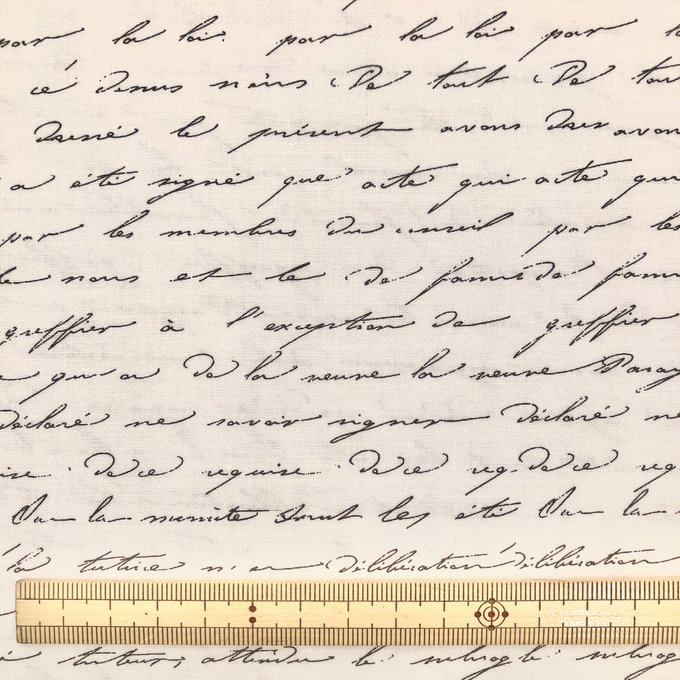 par la loi par la loi par
ce nous De tout De tou
le présent avons avons
a été signé que acte qui acte qui
par les membres du conseil par les
le nous et le de de
greffier à l'exception de greffier
qu'a de la veuve la veuve Paray
déclaré ne savoir signer déclaré ne
de ce requise de ce req. de ce req
la minute sont les été la
la tutrice délibération délibération
tuteur, attendu le le